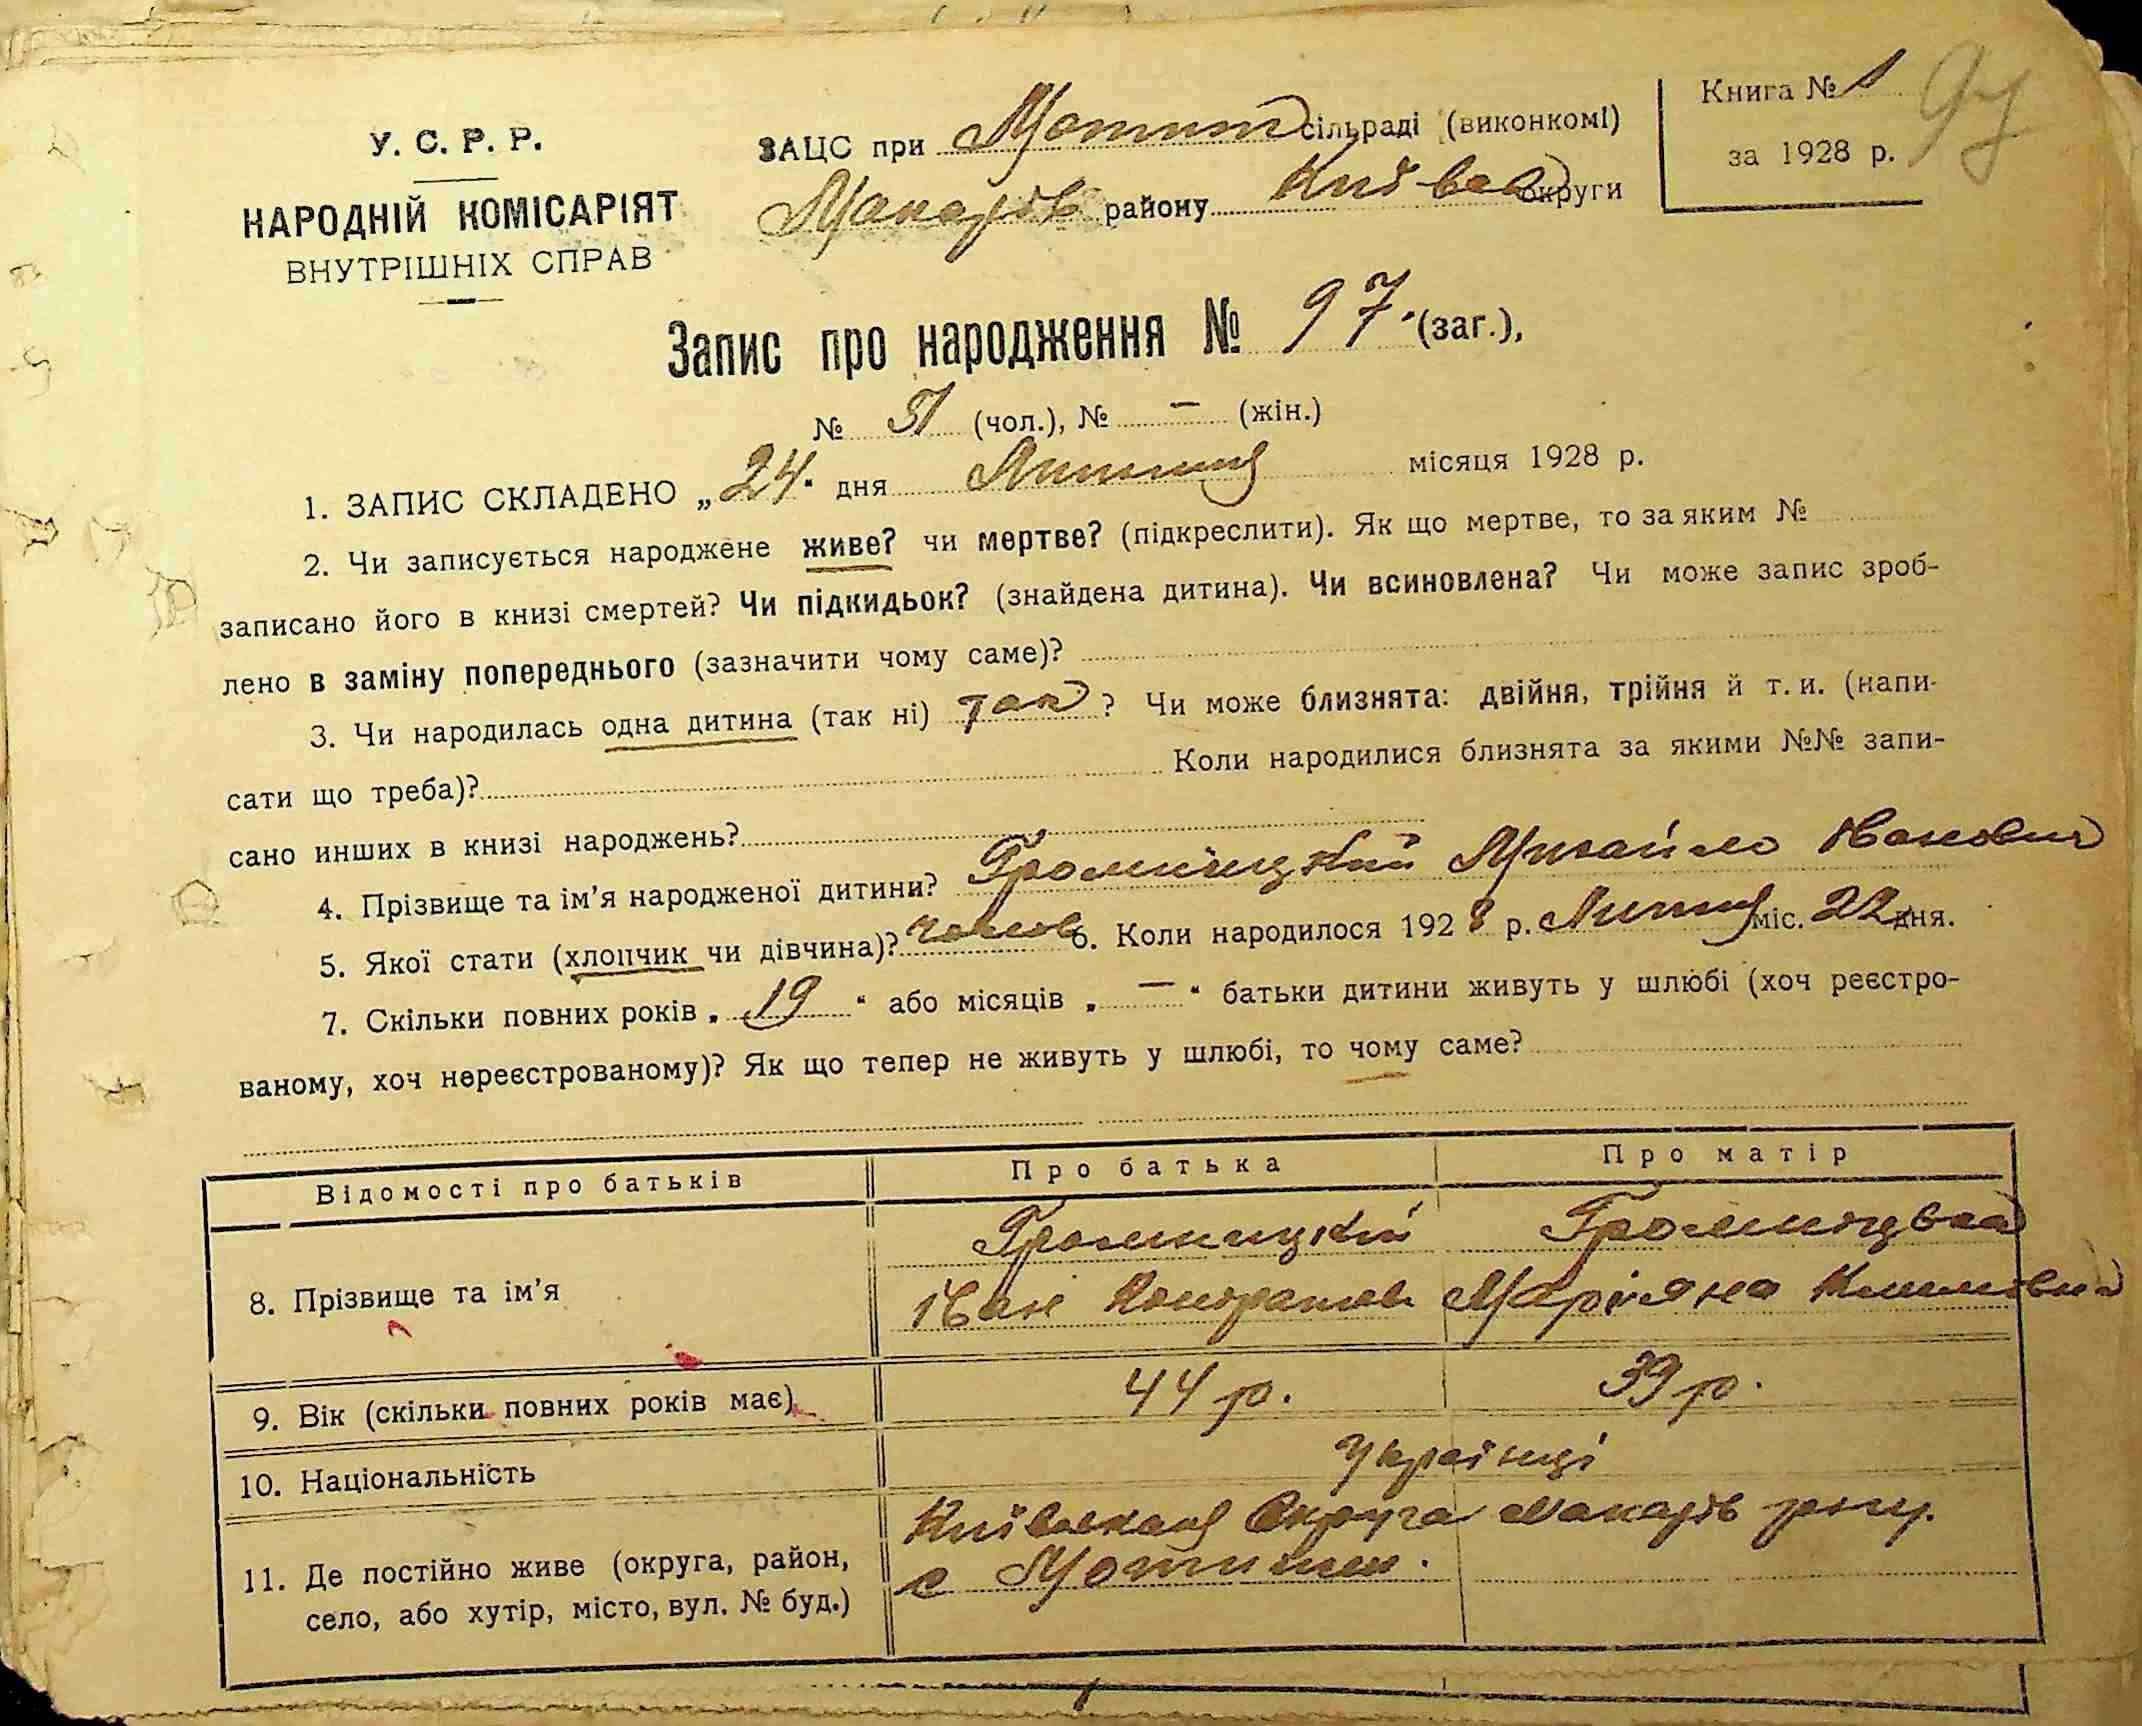 У. С. Р. Р.
НАРОДНІЙ КОМІСАРІЯТ
ВНУТРІШНІХ СПРАВ
ЗАЦС при Мотиж сільраді (виконкомі)
Макарів району Київська округи
Книга № 1
за 1928 р.
97
Запис про народження № 97 (заг.),
№ 51 (чол.), № — (жін.)
1. ЗАПИС СКЛАДЕНО „24“ дня Липня місяця 1928 р.
2. Чи записується народжене живе? чи мертве? (підкреслити). Як що мертве, то за яким №
записано його в книзі смертей? Чи підкидьок? (знайдена дитина). Чи всиновлена? Чи може запис зроб-
лено в заміну попереднього (зазначити чому саме)?
3. Чи народилась одна дитина (так ні) так ? Чи може близнята: двійня, трійня й т. и. (напи-
сати що треба)? Коли народилися близнята за якими №№ запи-
сано инших в книзі народжень?
4. Прізвище та ім’я народженої дитини? Михайло Іванович
5. Якої стати (хлопчик чи дівчина)? чолов 6. Коли народилося 1928 р. Липня міс. 22 дня.
7. Скільки повних років „ 19 “ або місяців „ — “ батьки дитини живуть у шлюбі (хоч реєстро-
ваному, хоч нереєстрованому)? Як що тепер не живуть у шлюбі, то чому саме?
Відомості про батьків Про батька Про матір
8. Прізвище та ім’я Громицкій
Іван Маріяна
9. Вік (скільки повних років має) 44 р. 39 р.
10. Національність Українці
11. Де постійно живе (округа, район,
село, або хутір, місто, вул. № буд.)
Київская Округа Макарів
с